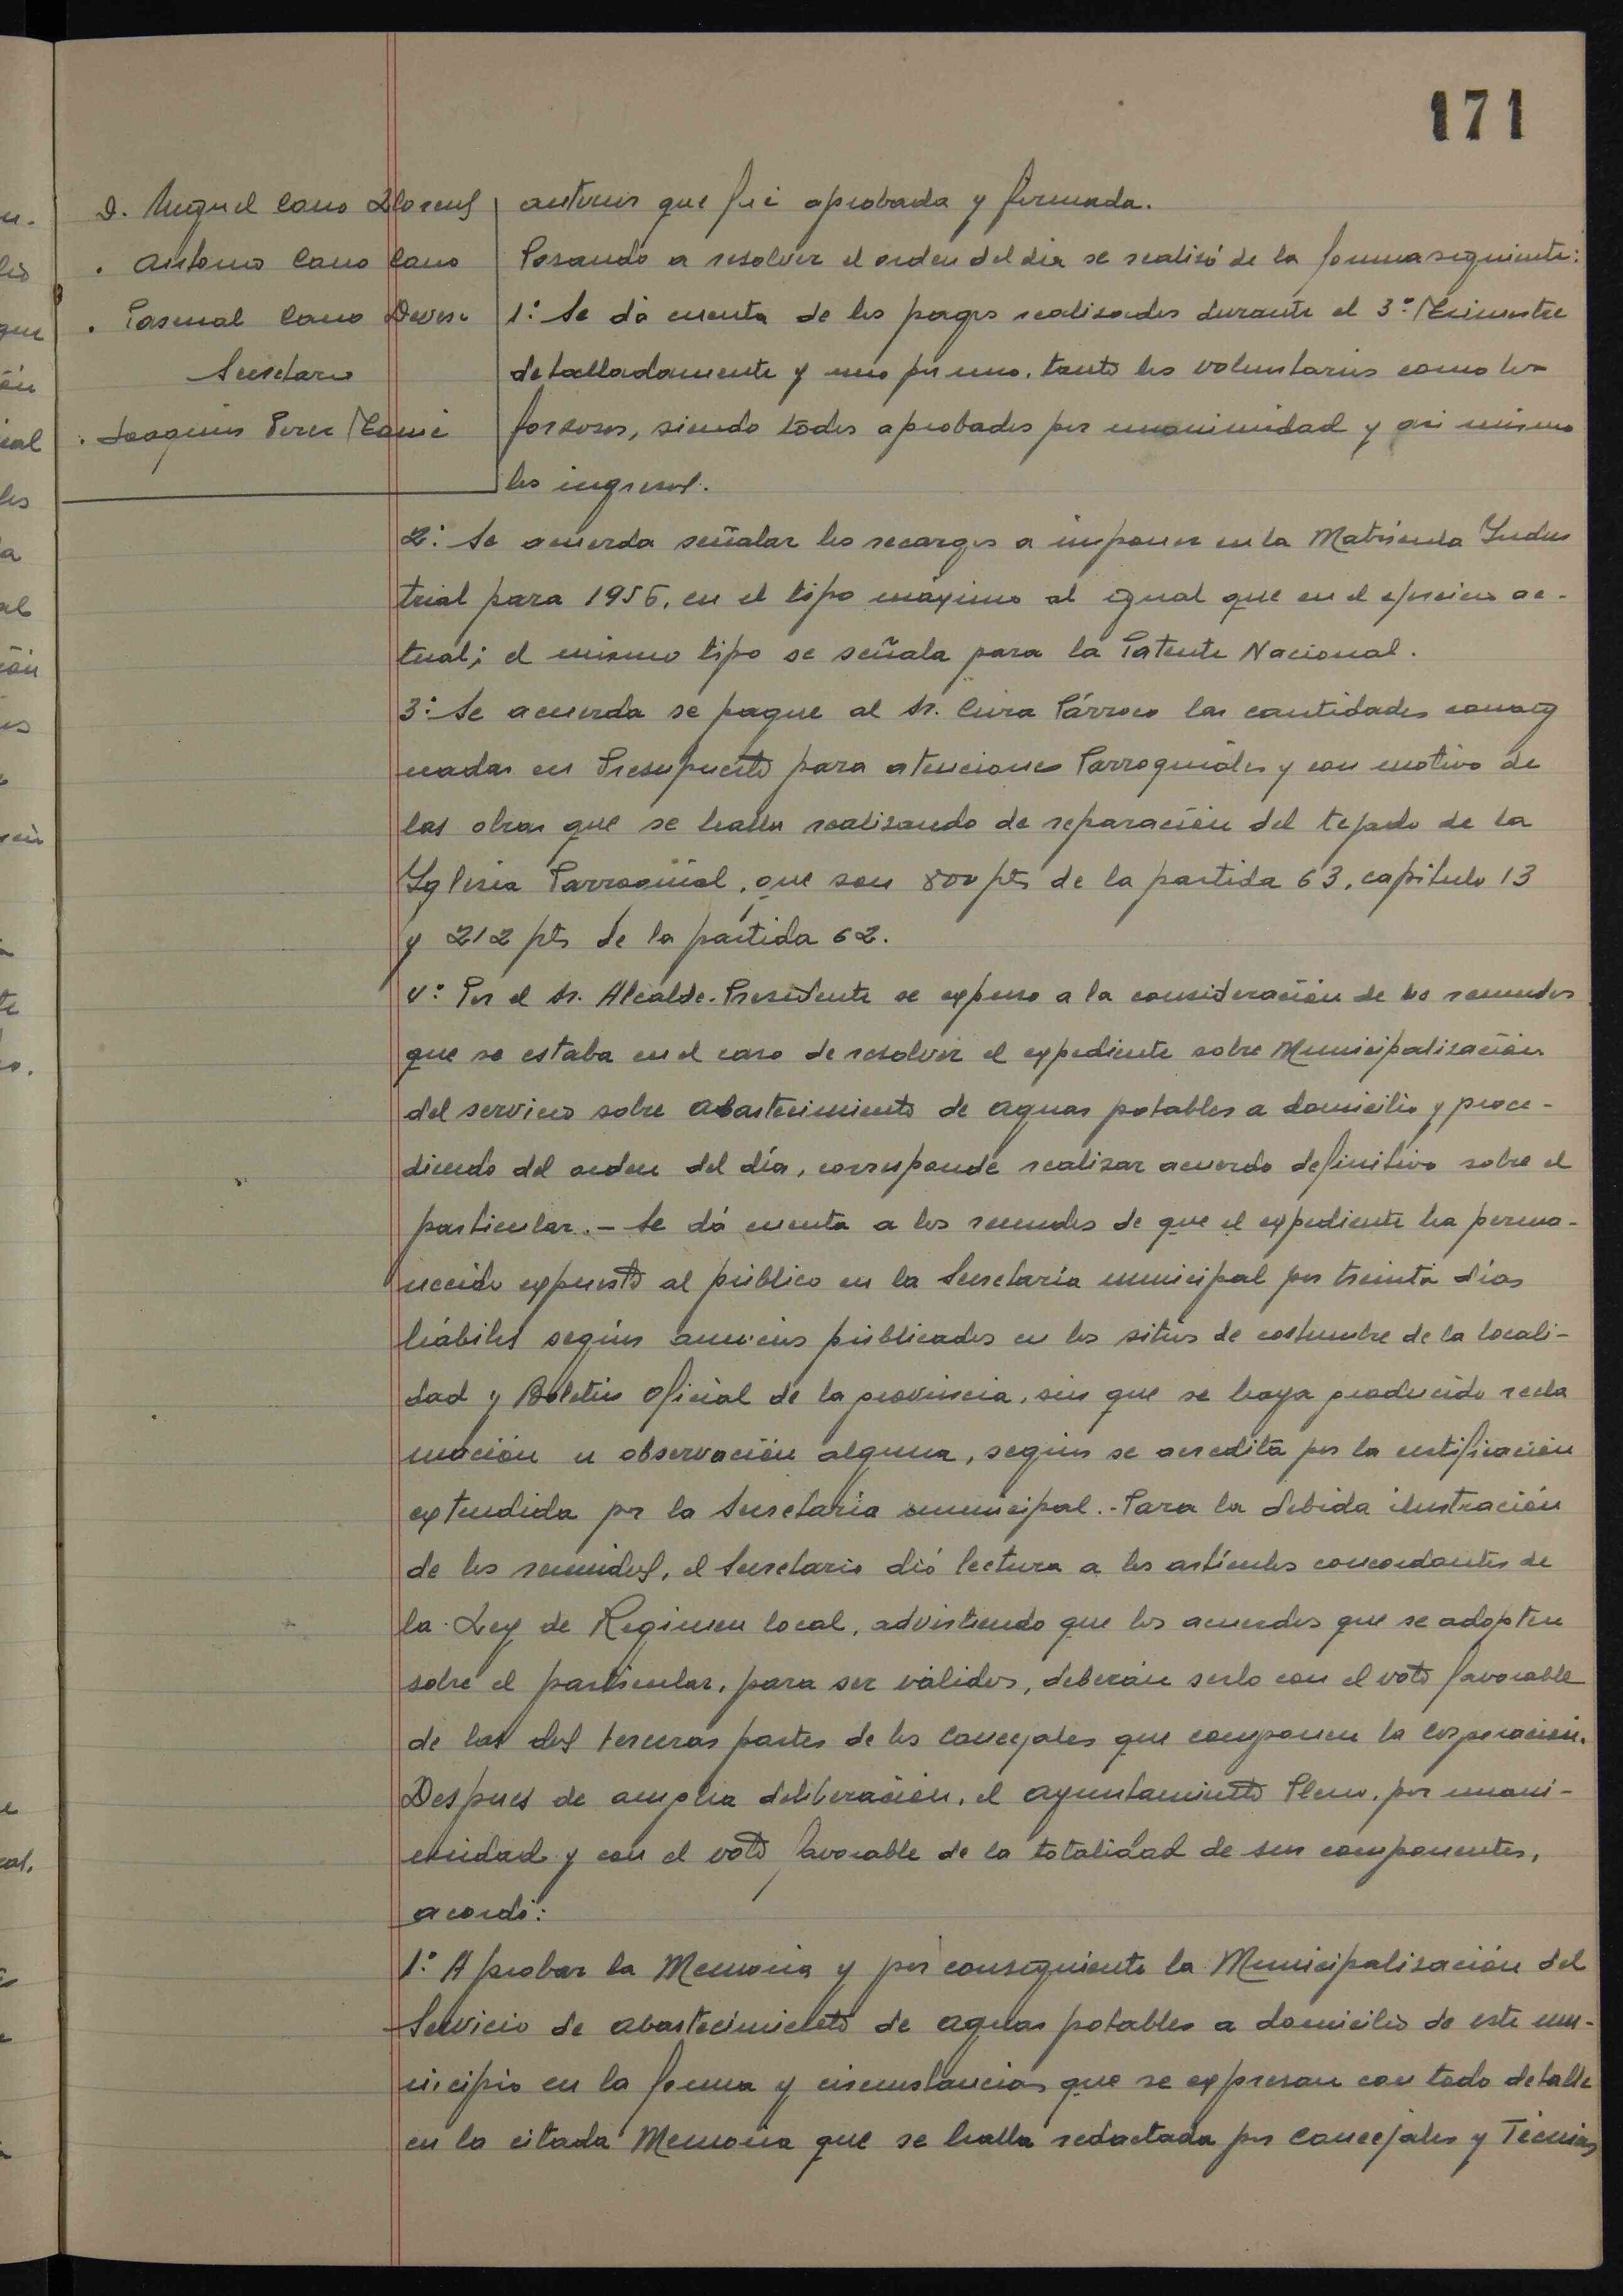 171
D. Miguel Cano Llorens
. Antonio Cano Cano
. Pascual Cano Devesa
Secretario
. Joaquin Perez
anterior que fué aprobada y firmada.
Pasando a resolver el orden del dia se realizó de la forma seguiente:
1º: Se dá cuenta de los pagos realizados durante el 3º Trimestre
detalladamente y uno por uno, tanto los voluntarios como los
forzosos, siendo todos aprobados por unanimidad y asi mismo
los ingresos.
2º: Se acuerda señalar los recargos a imponer en la Matricula Indus
trial para 1956, en el tipo máximo al igual que en el ejercicio ac-
tual; el mismo tipo se señala para la Patente Nacional.
3º: Se acuerda se pague al Sr. Cura Párroco las cantidades consig
nadas en Presupuesto para atenciones Parroquiales y con motivo de
las obras que se halla realizando de reparación del tejado de la
Yglesia Parroquial, que son 800 pts de la partida 63, capitulo 13
y 212 pts de la partida 62.
4º: Por el Sr. Alcalde-Presidente se expuso a la consideración de los reunidos
que se estaba en el caso de resolver el expediente sobre Municipalización
del servicio sobre abastecimiento de aguas potables a domicilio y proce-
diendo del orden del día, corresponde realizar acuerdo definitivo sobre el
particular.- Se dá cuenta a los reunidos de que el expediente ha perma-
necido expuesto al público en la Secretaría municipal por treinta días
hábiles según anuncios públicados en los sitios de costumbre de la locali-
dad y Boletín Oficial de la provincia, sin que se haya producido recla
mación u observación alguna, según se acredita por la certificación
extendida por la Secretaría municipal.- Para la debida ilustración
de los reunidos, el Secretario dió lectura a los artículos concordantes de
la Ley de Regimen local, advirtiendo que los acuerdos que se adopten
sobre el particular, para ser válidos, deberán serlo con el voto favorable
de las dos terceras partes de los Concejales que componen la Corporación.
Despues de amplia deliberación, el ayuntamiento Pleno, por unani-
midad y con el voto favorable de la totalidad de sus componentes,
acordó:
1º: Aprobar la Memoria y por consiguiente la Municipalización del
Servicio de abastecimiento de aguas potables a domicilio de este mu-
nicipio en la forma y circunstancias que se expresan con todo detalle
en la citada Memoria que se halla redactada por Concejales y Técnicos